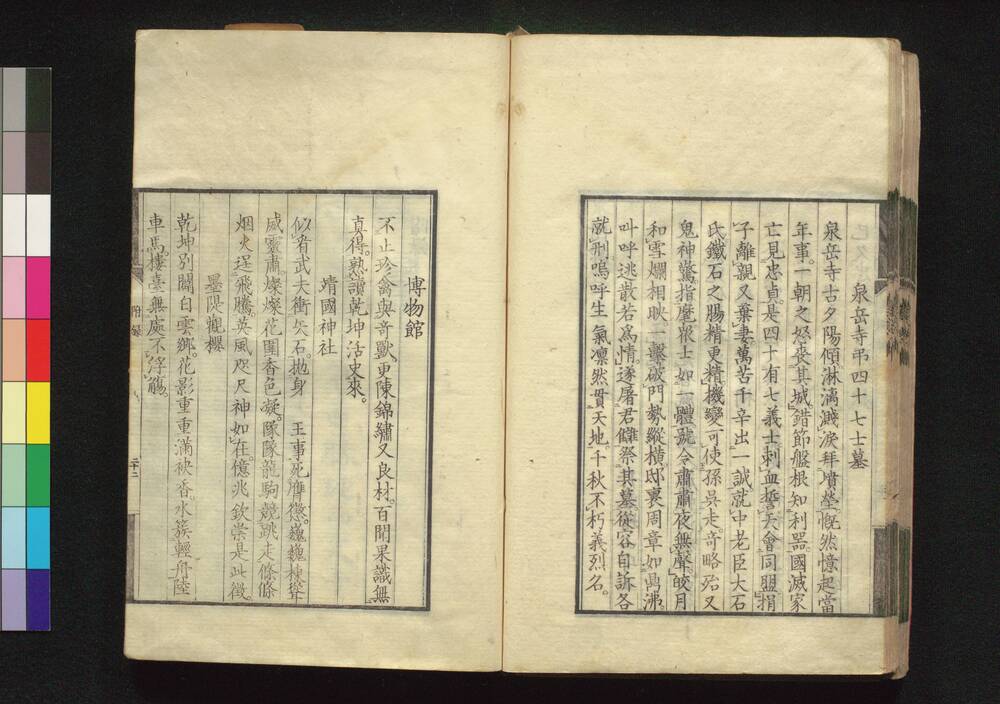 泉岳寺弔四十七士墓
泉岳寺古夕陽傾淋漓濺淚拜墳塋慨然憶起當
年事。一朝之怒喪其城錯節盤根知利器。國滅家
亡見忠貞是四十有七義士刺血誓天會同盟捐
子離親又棄妻萬苦千辛出一誠就中老臣大石
氏鐵石之腸精更精機變可使孫吳走。奇略殆又
鬼神驚。指麾眾士如一體號令肅肅夜無聲皎月
和雪爛相映一擊破門勢縱橫。邸裏周章如蜩沸
叫呼逃散若爲情。遂屠君讎祭其墓從容自訴各
就刑嗚呼生氣凛然貫天地。千秋不朽義烈名。
博物館
不止珍禽與奇獸更陳錦繡又良材。百聞果識無
真得。熟讀乾坤活史來。
靖國神社
似看武夫衝矢石。拋身 王事死膺懲。巍巍棟聳
威靈肅。燦燦花圍香色凝。隊隊龍駒競跳走條條
烟火逞飛騰。英風咫尺神如在。億兆欽崇是此徵。
墨隄觀櫻
乾坤別闢白雲鄉。花影重重滿袂香。水簇輕舟陸
車馬樓臺無處不浮觴。
附錄
二十二